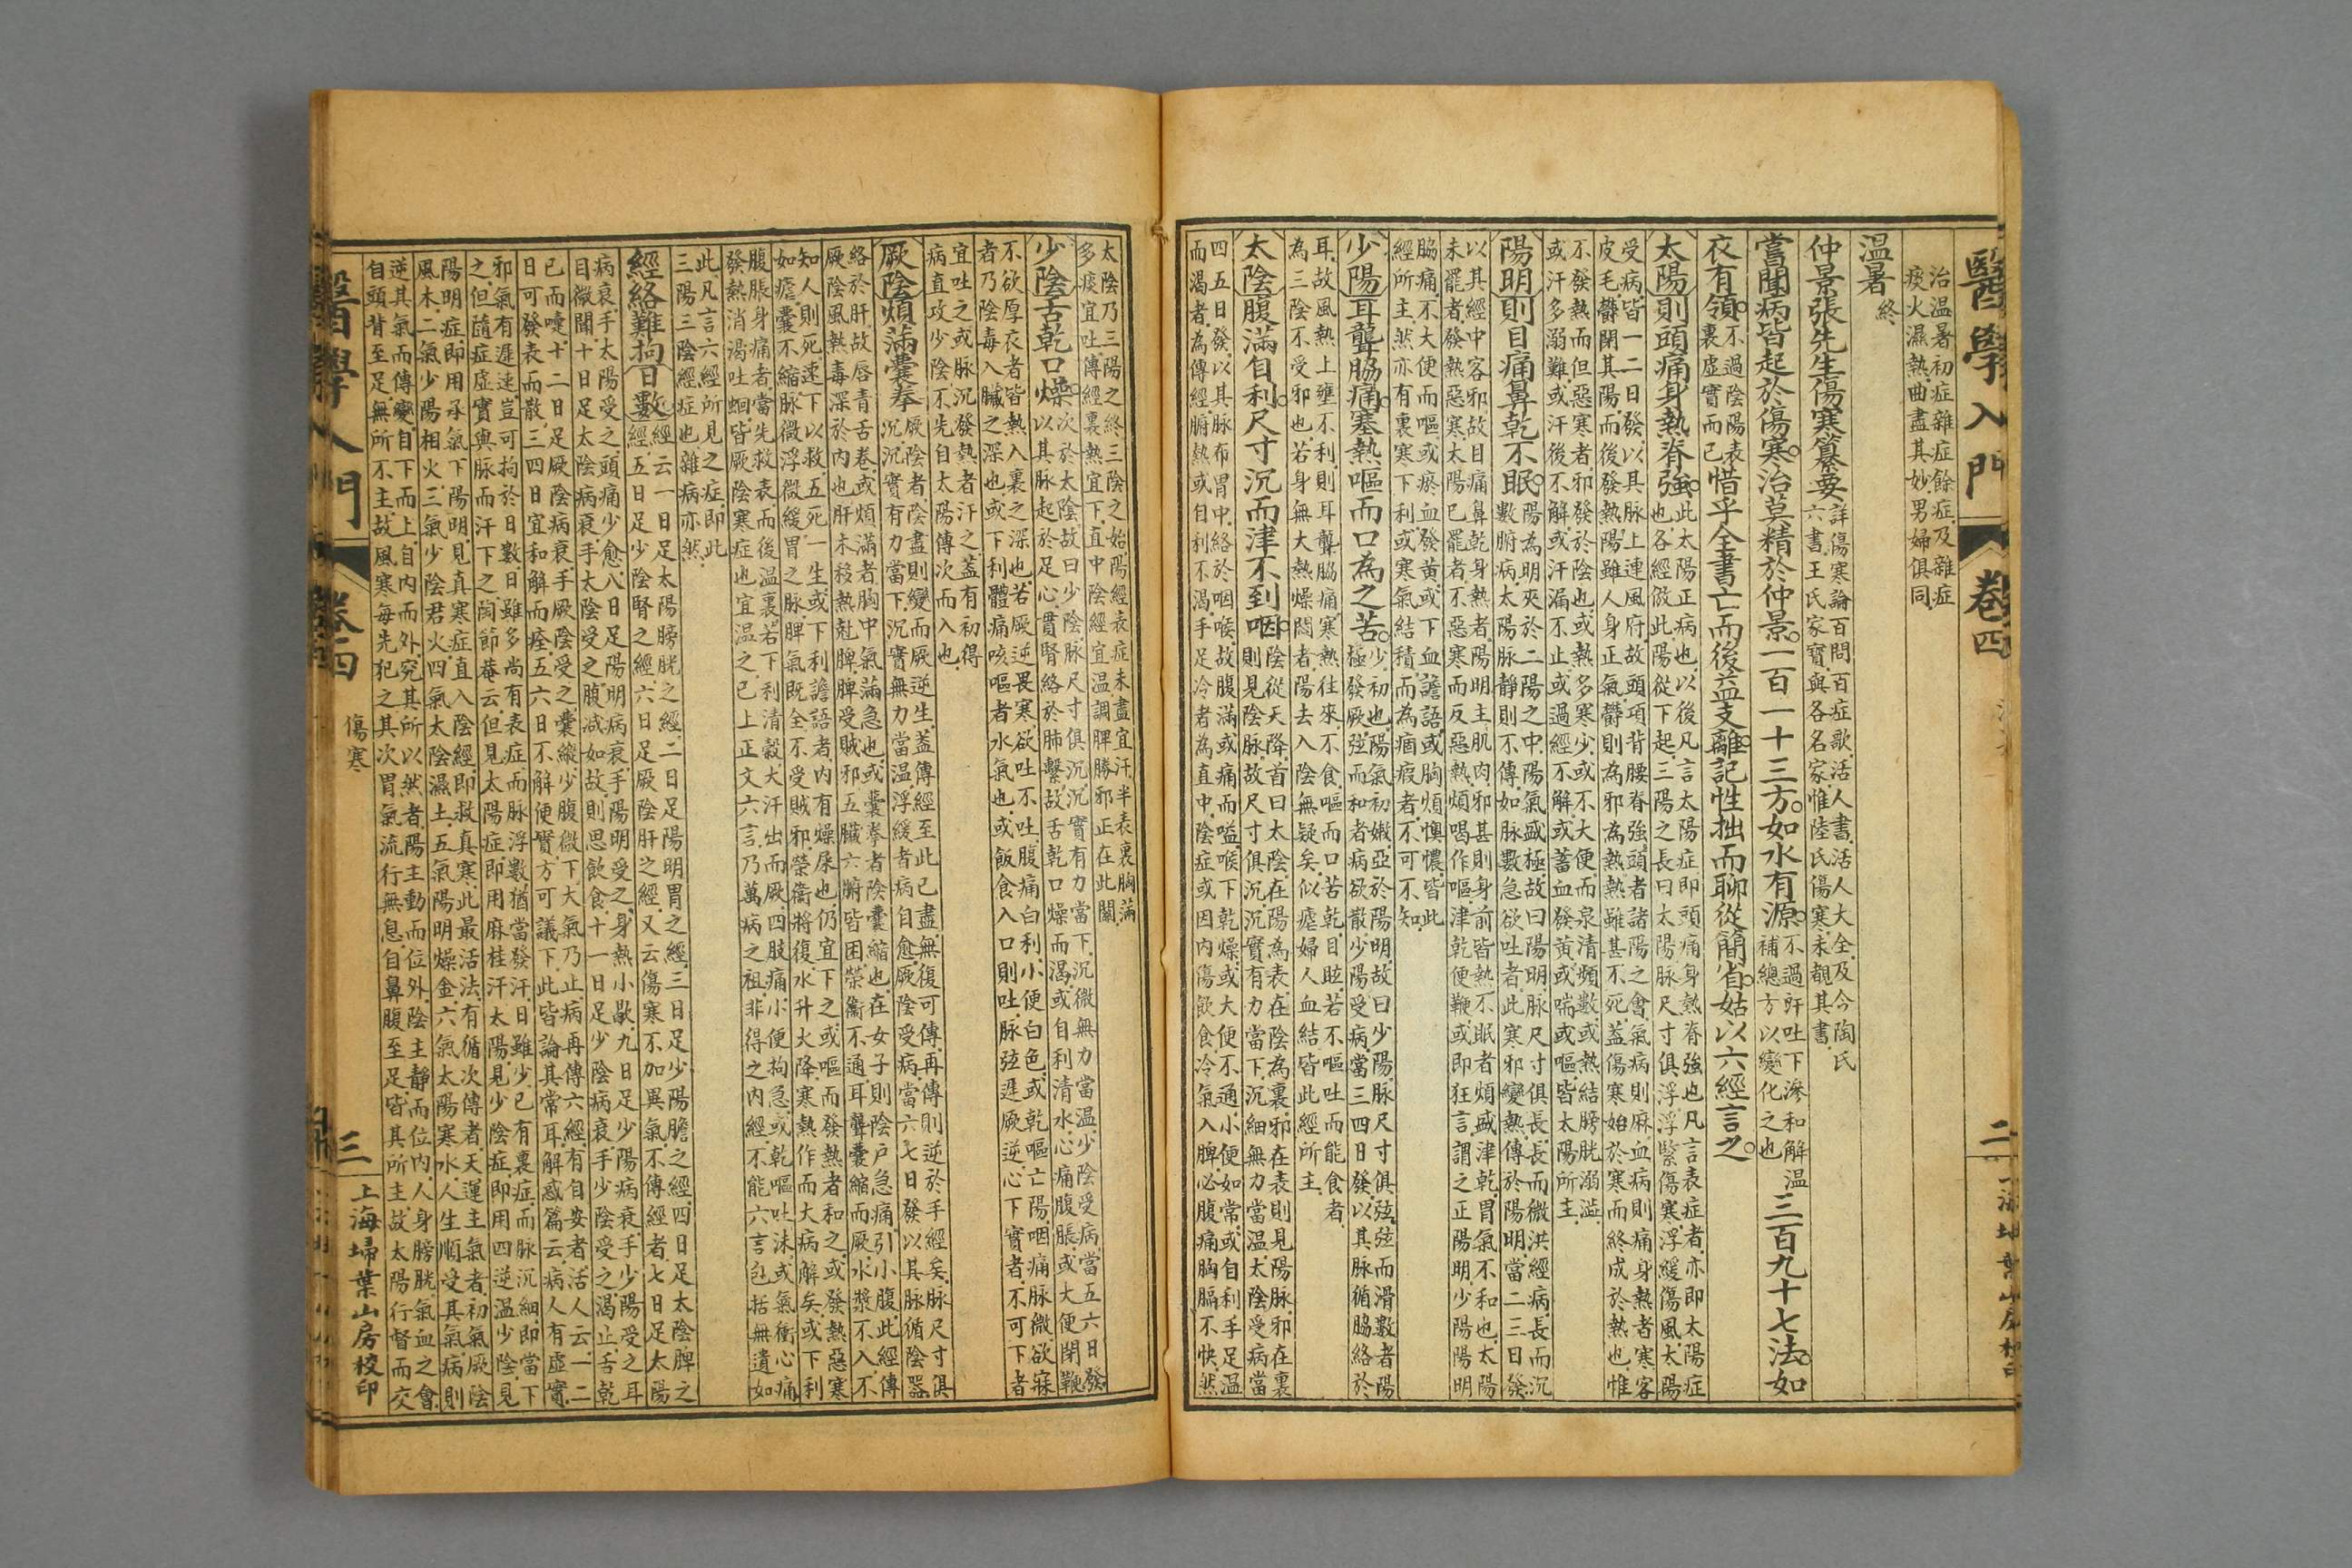 醫學入門 卷四 二
治温暑初症雜症餘症及雜症
痰火濕熱曲盡其妙男婦俱同
温暑終
仲景張先生傷寒纂要詳傷寒論百問百症歌活人書活人大全及今陶氏六書王氏家寶與各名家惟陸氏傷寒未覩其書
嘗聞病皆起於傷寒治莫精於仲景一百一十三方如水有源不過汗吐下滲和解温補總方以變化之也三百九十七法如
衣有領不過陰陽表裏虛實而已惜乎全書亡而後益支離記性拙而聊從簡省姑以六經言之
太陽則頭痛身熱脊強此太陽正病也以後凡言太陽症即頭痛身熱脊強也凡言表症者亦即太陽症也各經倣此陽從下起三陽之長曰太陽脉尺寸俱浮浮緊傷寒浮緩傷風太陽
受病皆一二日發以其脉上連風府故頭項背腰脊強頭者諸陽之會氣病則麻血病則痛身熱者寒客
皮毛鬱閉其陽而後發熱陽雖人身正氣鬱則為邪為熱熱雖甚不死蓋傷寒始於寒而終成於熱也惟
不發熱而但惡寒者邪發於陰也或熱多寒少或不大便而泉清頻數或熱結膀胱溺澁
或汗多溺難或汗後不解或汗漏不止或過經不解或蓄血發黃或喘或嘔皆太陽所主
陽明則目痛鼻乾不眠陽為明夾於二陽之中陽氣盛極故曰陽明脉尺寸俱長長而微洪經病長而沉數腑病太陽脉靜則不傳如脉數急欲吐者此寒邪變熱傳於陽明當二三日發
以其經中客邪故目痛鼻乾身熱者陽明主肌肉邪甚則身前皆熱不眠者煩盛津乾胃氣不和也太陽
未罷者發熱惡寒太陽已罷者不惡寒而反惡熱煩喝作嘔津乾便鞕或即狂言謂之正陽明少陽陽明
脇痛不大便而嘔或瘀血發黃或下血譫語或胸煩懊憹皆此
經所主然亦有裏寒下利或寒氣結積而為痼瘕者不可不知
少陽耳聾脇痛寒熱嘔而口為之苦少初也陽氣初嫩亞於陽明故曰少陽脉尺寸俱弦弦而滑數者陽極發厥弦而和者病欲散少陽受病當三四日發以其脉循脇絡於
耳故風熱上壅不利則耳聾脇痛寒熱往來不食嘔而口苦乾目眩若不嘔吐而能食者
為三陰不受邪也若身無大熱燥悶者陽去入陰無疑矣似瘧婦人血結皆此經所主
太陰腹滿自利尺寸沉而津不到咽陰從天降首曰太陰在陽為表在陰為裏邪在表則見陽脉邪在裏則見陰脉故尺寸俱沉沉實有力當下沉細無力當温太陰受病當
四五日發以其脉布胃中絡於咽喉故腹滿或痛而嗌喉下乾燥或大便不通小便如常或自利手足温
而渴者為傳經腑熱或自利不渴手足冷者為直中陰症或因内傷飲食冷氣入脾必腹痛胸膈不快然
太陰乃三陽之終三陰之始陽經表症未盡宜汗半表裏胸滿
多痰宜吐傳經裏熱宜下直中陰經宜温調脾勝邪正在此關
少陰舌乾口燥次於太陰故曰少陰脉尺寸俱沉沉實有力當下沉微無力當温少陰受病當五六日發以其脉起於足心貫腎絡於肺繫故舌乾口燥而渴或自利清水心痛腹脹或大便閉鞕
不欲厚衣者皆熱入裏之深也若厥逆畏寒欲吐不吐腹痛自利小便白色或乾嘔亡陽咽痛脉微欲寐
者乃陰毒入臟之深也或下利體痛咳嘔者水氣也或飯食入口則吐脉弦遲厥逆心下實者不可下者
宜吐之或脉沉發熱者汗之蓋有初得
病直攻少陰不先自太陽傳次而入也
厥陰煩滿囊拳厥陰者陰盡則變而厥逆生蓋傳經至此已盡無復可傳再傳則逆於手經矣脉尺寸俱沉沉實有力當下沉實無力當温浮緩者病自愈厥陰受病當六七日發以其脉循陰器
絡於肝故唇青舌卷或煩滿者胸中氣滿急也或囊拳者陰囊縮也在女子則陰户急痛引小腹此經傳
厥陰風熱毒深於内也肝未移熱尅脾脾受賊邪五臟六腑皆困榮衞不通耳聾囊縮而厥水漿不入不
知人則死速下以救五死一生或下利譫語者内有燥屎也仍宜下之或嘔而發熱者和之或發熱惡寒
如瘧囊不縮脉微浮微緩胃之脉脾氣既全不受賊邪榮衞將復水升火降寒熱作而大病解矣或下利
腹脹身痛者當先救表而後温裏若下利清穀大汗出而厥四肢痛小便拘急或乾嘔吐沫或氣衝心痛
發熱消渴吐蛔皆厥陰寒症也宜温之已上正文六言乃萬病之祖非得之内經不能六言包括無遺如
此凡言六經所見之症即此
三陽三陰經症也雜病亦然
經絡難拘日數經云一日足太陽膀胱之經二日足陽明胃之經三日足少陽膽之經四日足太陰脾之經五日足少陰腎之經六日足厥陰肝之經又云傷寒不加異氣不傳經者七日足太陽
病衰手太陽受之頭痛少愈八日足陽明病衰手陽明受之身熱小歇九日足少陽病衰手少陽受之耳
目微聞十日足太陰病衰手太陰受之腹减如故則思飲食十一日足少陰病衰手少陰受之渴止舌乾
已而嚏十二日足厥陰病衰手厥陰受之囊縱少腹微下大氣乃止病再傳六經有自安者活人云一二
日可發表而散三四日宜和解而痊五六日不解便實方可議下此皆論其常耳解惑篇云病人有虛實
邪氣有遲速豈可拘於日數日雖多尚有表症而脉浮數猶當發汗日雖少已有裏症而脉沉細即當下
之但隨症虛實與脉而汗下之陶節菴云但見太陽症即用麻桂汗太陽見少陰症即用四逆温少陰見
陽明症即用承氣下陽明見真寒症直入陰經即救真寒此最活法有循次傳者天運主氣者初氣厥陰
風木二氣少陽相火三氣少陰君火四氣太陰濕土五氣陽明燥金六氣太陽寒水人生順受其氣病則
逆其氣而傳變自下而上自内而外究其所以然者陽主動而位外陰主靜而位内人身膀胱氣血之會
自頭背至足無所不主故風寒每先犯之其次胃氣流行無息自鼻腹至足皆其所主故太陽行督而交
醫學入門 卷四 傷寒 三 上海埽葉山房校印